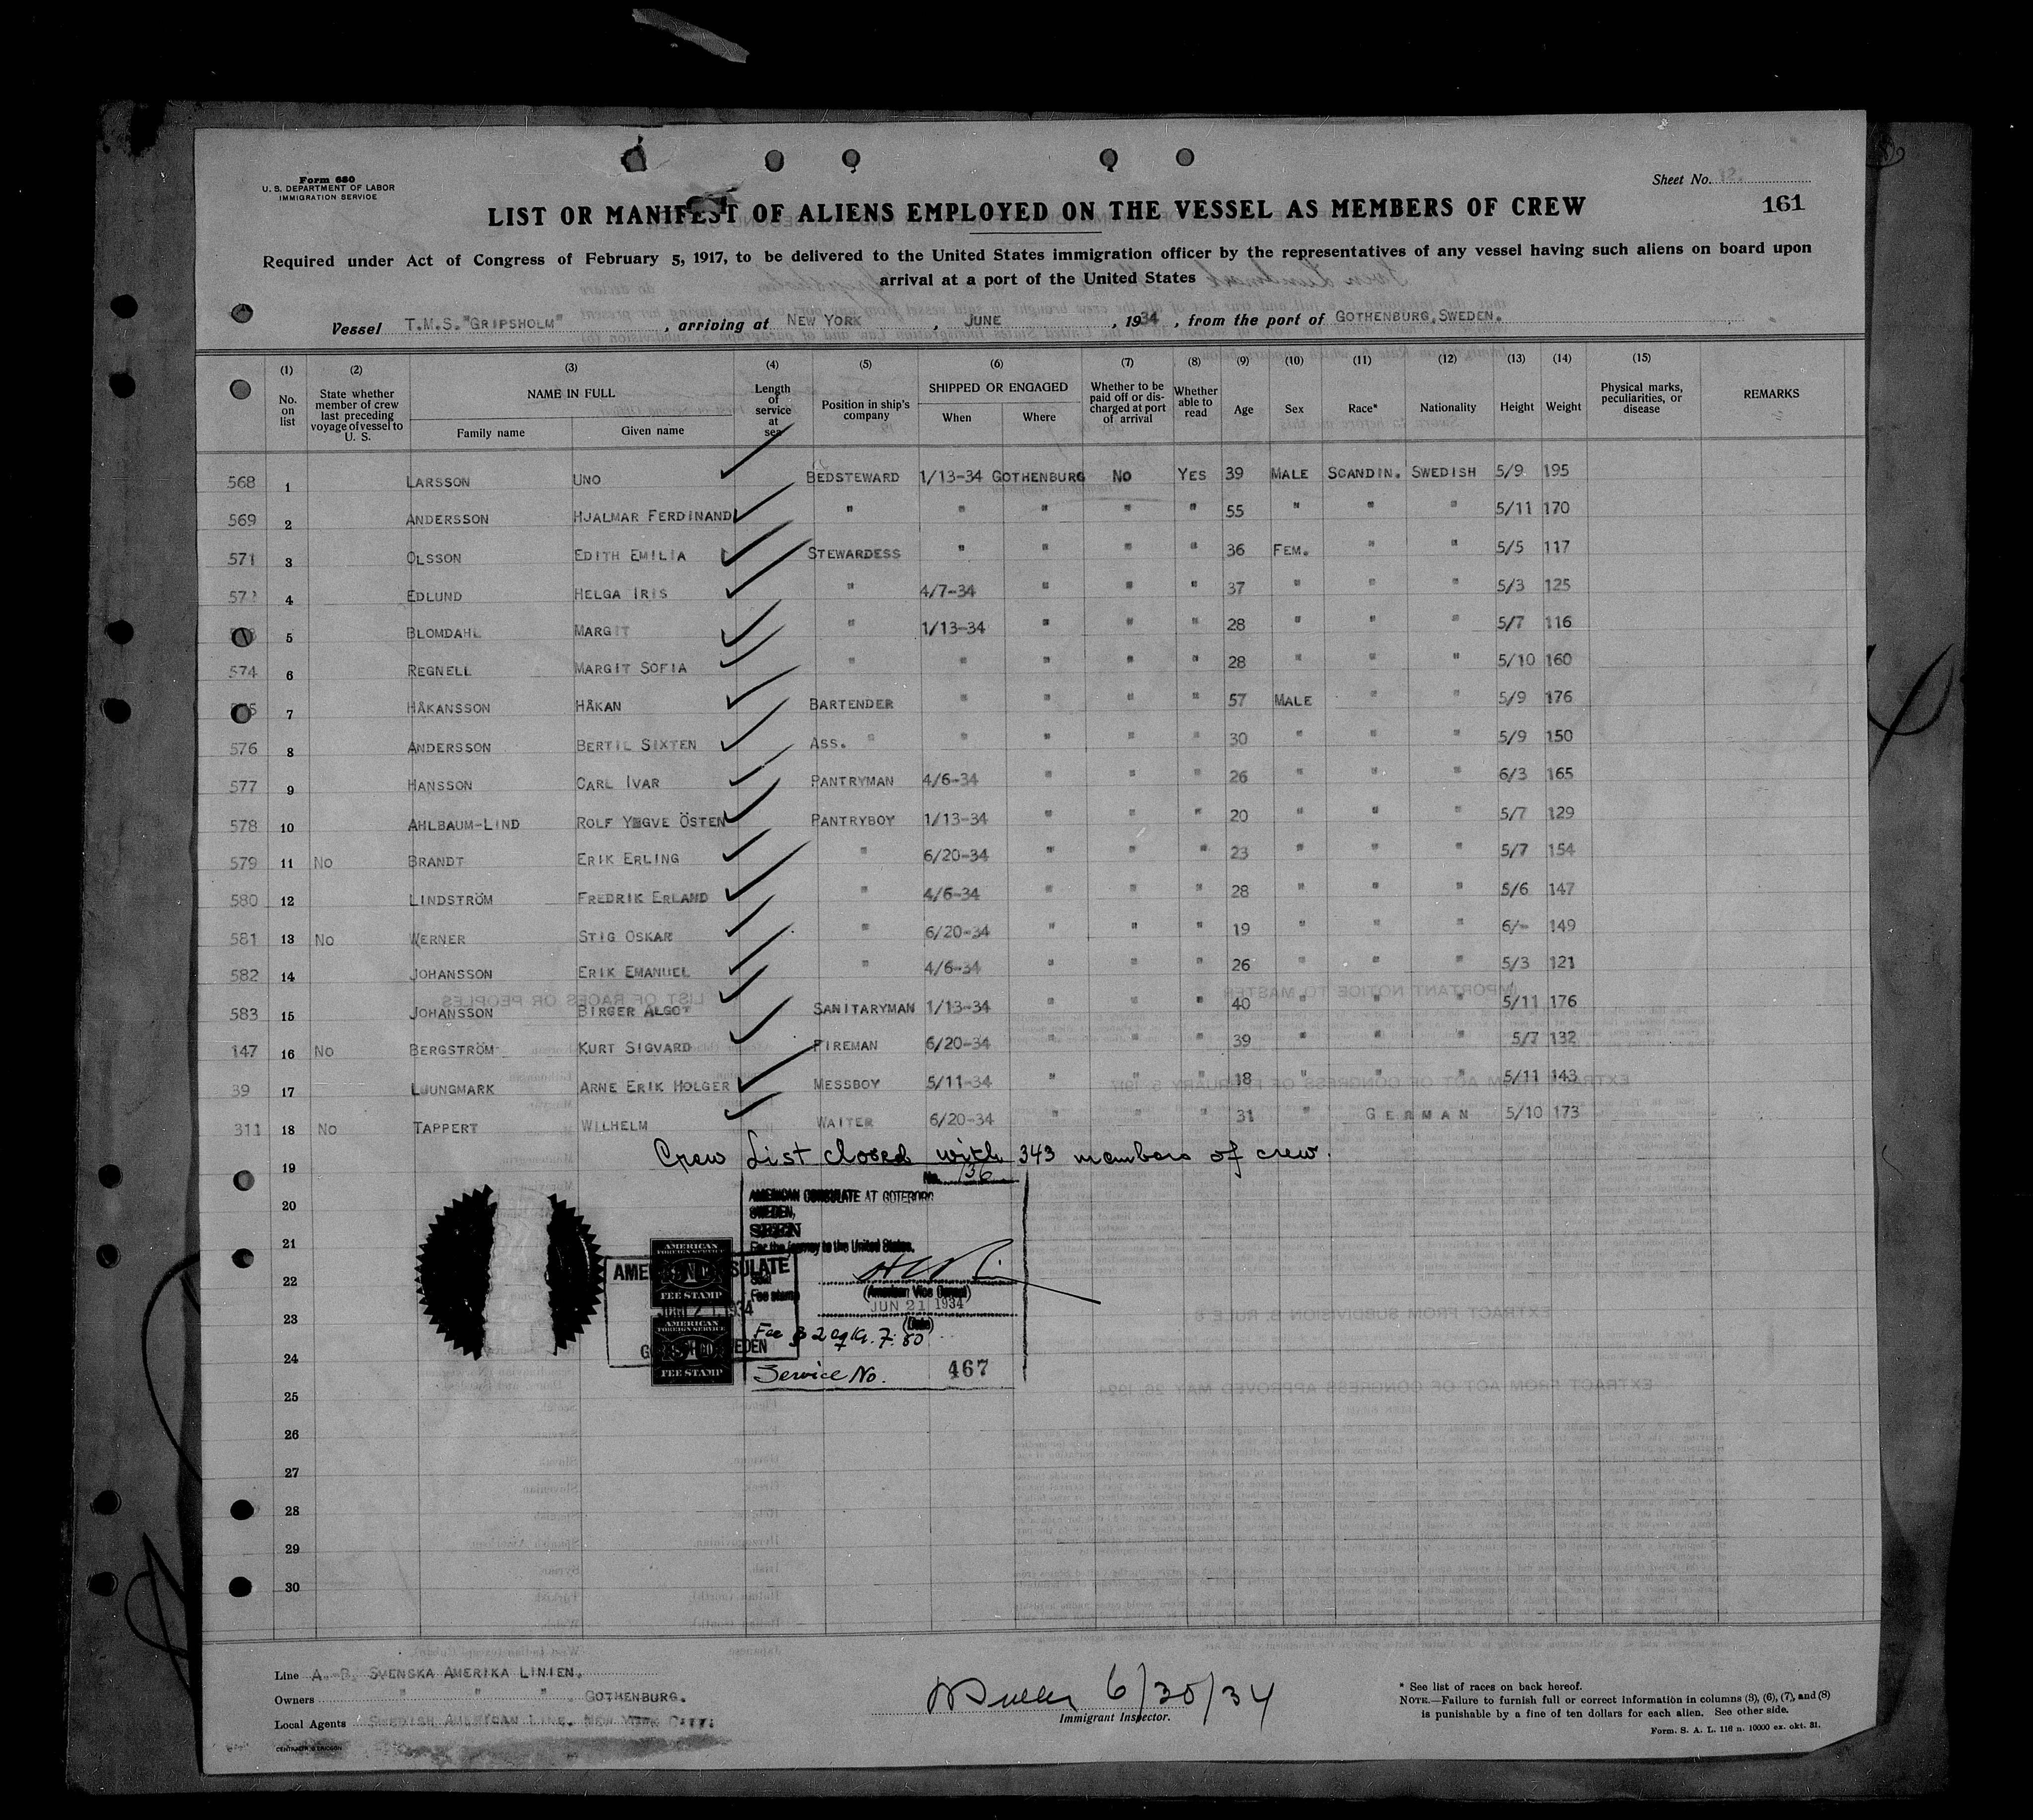 Form 680
U. S. DEPARTMENT OF LABOR
IMMIGRATION SERVICE
Sheet No.
LIST OR MANIFEST OF ALIENS EMPLOYED ON THE VESSEL AS MEMBERS OF CREW
161
Required under Act of Congress of February 5, 1917, to be delivered to the United States immigration officer by the representatives of any vessel having such aliens on board upon
arrival at a port of the United States
Vessel T.M.S. "GRIPSHOLM" , arriving at NEW YORK , JUNE , 1934 , from the port of GOTHENBURG, SWEDEN.
(1) No. on list
(2) State whether member of crew last preceding voyage of vessel to U. S.
(3) NAME IN FULL Family name Given name
(4) Length of service at sea
(5) Position in ship's company
(6) SHIPPED OR ENGAGED When Where
(7) Whether to be paid off or discharged at port of arrival
(8) Whether able to read
(9) Age
(10) Sex
(11) Race*
(12) Nationality
(13) Height
(14) Weight
(15) Physical marks, peculiarities, or disease
REMARKS
568 1 LARSSON UNO BEDSTEWARD 1/13-34 GOTHENBURG NO YES 39 MALE SCANDIN. SWEDISH 5/9 195
569 2 ANDERSSON HJALMAR FERDINAND " " " " " 55 " " " 5/11 170
571 3 OLSSON EDITH EMILIA STEWARDESS " " " " 36 FEM. " " 5/5 117
4 EDLUND HELGA IRIS " 4/7-34 " " " 37 " " " 5/3 125
5 BLOMDAHL MARGIT " 1/13-34 " " " 28 " " " 5/7 116
574 6 REGNELL MARGIT SOFIA " " " " " 28 " " " 5/10 160
7 HÅKANSSON HÅKAN BARTENDER " " " " 57 MALE " " 5/9 176
576 8 ANDERSSON BERTIL SIXTEN ASS. " " " " " 30 " " " 5/9 150
577 9 HANSSON CARL IVAR PANTRYMAN 4/6-34 " " " 26 " " " 6/3 165
578 10 AHLBAUM-LIND ROLF YNGVE ÖSTEN PANTRYBOY 1/13-34 " " " 20 " " " 5/7 129
579 11 NO BRANDT ERIK ERLING " 6/20-34 " " " 23 " " " 5/7 154
580 12 LINDSTRÖM FREDRIK ERLAND " 4/6-34 " " " 28 " " " 5/6 147
581 13 NO WERNER STIG OSKAR " 6/20-34 " " " 19 " " " 6/- 149
582 14 JOHANSSON ERIK EMANUEL " 4/6-34 " " " 26 " " " 5/3 121
583 15 JOHANSSON BIRGER ALGOT SANITARYMAN 1/13-34 " " " 40 " " " 5/11 176
147 16 NO BERGSTRÖM KURT SIGVARD FIREMAN 6/20-34 " " " 39 " " " 5/7 132
39 17 LJUNGMARK ARNE ERIK HOLGER MESSBOY 5/11-34 " " " 18 " " " 5/11 143
311 18 NO TAPPERT WILHELM WAITER 6/20-34 " " " 31 " GERMAN 5/10 173
19 Crew List closed with 343 members of crew.
No. 136
AMERICAN CONSULATE AT GOTEBORG
20 SWEDEN,
SEEN
21 For the journey to the United States.
AMERICAN FOREIGN SERVICE
AMERICAN CONSULATE
22 Seal
FEE STAMP
Fee stamp
(American Vice Consul)
JUN 21 1934
JUN 21 1934
23 (Date)
AMERICAN FOREIGN SERVICE
Fee $ 2 eq Kr. 7:80
24 FEE STAMP
Service No. 467
25
26
27
28
29
30
Line A.-B. SVENSKA AMERIKA LINIEN.
Owners " " " GOTHENBURG.
Local Agents SWEDISH AMERICAN LINE. NEW YORK CITY.
6/30/34
Immigrant Inspector.
* See list of races on back hereof.
NOTE.—Failure to furnish full or correct information in columns (3), (6), (7), and (8)
is punishable by a fine of ten dollars for each alien. See other side.
Form. S. A. L. 116 n. 10000 ex. okt. 31.